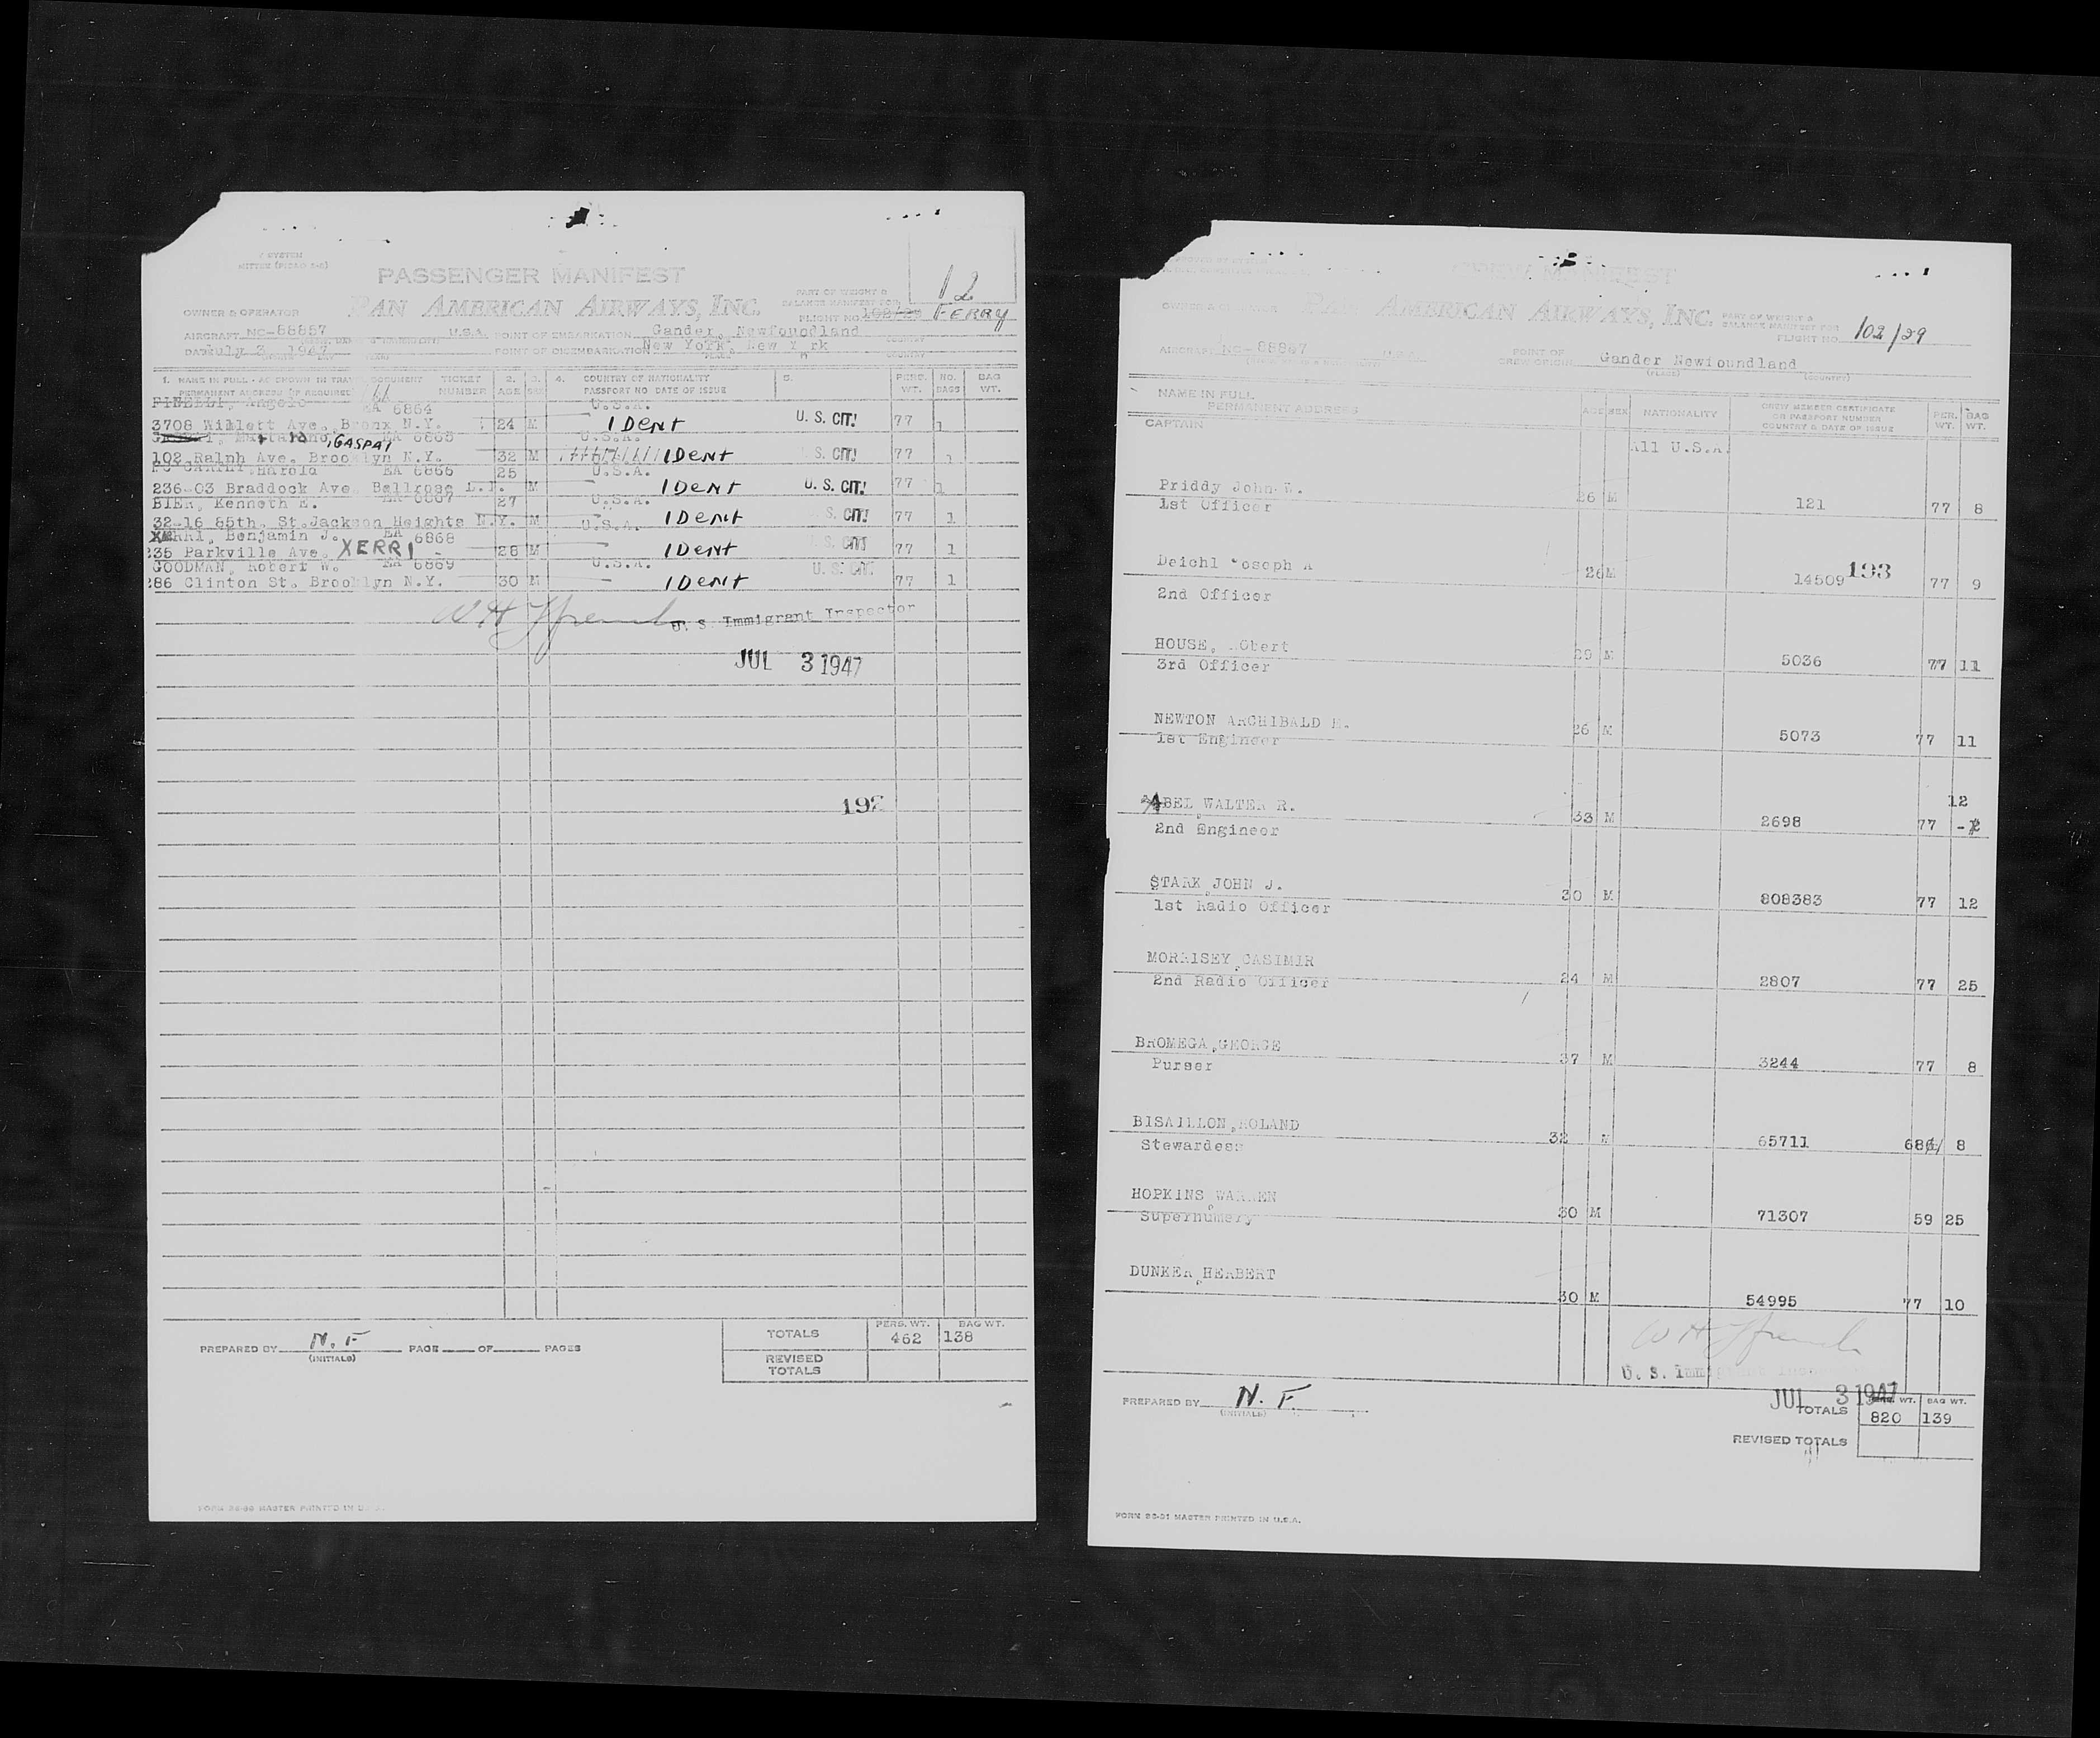 PASSENGER MANIFEST
12
PAN AMERICAN AIRWAYS, INC.
PART OF WEIGHT &
BALANCE MANIFEST FOR
OWNER & OPERATOR
FLIGHT NO. FERRY
AIRCRAFT NC-88857 U.S.A. POINT OF EMBARKATION Gander, Newfoundland
DATE July 3 1947 POINT OF DISEMBARKATION New York, New Y rk
COUNTRY
1. NAME IN FULL - AS SHOWN IN TRAV DOCUMENT TICKET NUMBER 2. AGE 3. SEX 4. COUNTRY OF NATIONALITY PASSPORT NO DATE OF ISSUE 5. PERS. WT. NO. BAGS BAG WT.
PERMANENT ADDRESS IF REQUIRED
PINELLI, Angelo EA 6864 U.S.A.
3708 Willett Ave., Bronx N.Y. 24 M IDENT U. S. CIT! 77 1
GASPAI EA 6865 U.S.A.
102 Ralph Ave. Brooklyn N.Y. 32 M IDENT U. S. CIT! 77 1
Harold EA 6866 25 U.S.A.
236-03 Braddock Ave Bellrose L.I. M IDENT U. S. CIT! 77 1
BIER, Kenneth E. EA 6867 27 U.S.A.
32-16 85th. St. Jackson Heights N.Y. M U.S.A. IDENT S. CIT! 77 1
XERRI, Benjamin J. EA 6868
235 Parkville Ave. XERRI 28 M IDENT U. S. CIT! 77 1
GOODMAN, Robert W. EA 6869 U.S.A.
286 Clinton St. Brooklyn N.Y. 30 M IDENT U. S. CIT! 77 1
U. S. Immigrant Inspector
JUL 3 1947
192
TOTALS PERS. WT. 462 BAG WT. 138
PREPARED BY N. F (INITIALS) PAGE OF PAGES
REVISED TOTALS
MASTER PRINTED IN U.S.A.
PAN AMERICAN AIRWAYS, INC.
PART OF WEIGHT &
BALANCE MANIFEST FOR
FLIGHT NO. 102/29
AIRCRAFT NC-88857 U.S.A. POINT OF CREW ORIGIN Gander Newfoundland
(PLACE) (COUNTRY)
NAME IN FULL
PERMANENT ADDRESS AGE SEX NATIONALITY CREW MEMBER CERTIFICATE OR PASSPORT NUMBER COUNTRY & DATE OF ISSUE PER. WT. BAG WT.
CAPTAIN
All U.S.A.
Priddy John W. 26 M 121 77 8
1st Officer
193
Deichl Joseph A 26 M 14509 77 9
2nd Officer
HOUSE, Robert 29 M 5036 77 11
3rd Officer
NEWTON ARCHIBALD H. 26 M 5073 77 11
1st Engineer
12
ABEL WALTER R. 33 M 2698 77
2nd Engineer
STARK, JOHN J. 30 M 808383 77 12
1st Radio Officer
MORRISEY, CASIMIR 24 M 2807 77 25
2nd Radio Officer
BROMEGA, GEORGE 37 M 3244 77 8
Purser
BISAILLON, ROLAND 32 M 65711 68 8
Stewardess
HOPKINS, WARREN 30 M 71307 59 25
Supernumery
DUNKER, HERBERT 30 M 54995 77 10
U. S. Immigrant
JUL 3 1947
PREPARED BY N. F. (INITIALS)
TOTALS PERS. WT. 820 BAG WT. 139
REVISED TOTALS
MASTER PRINTED IN U.S.A.